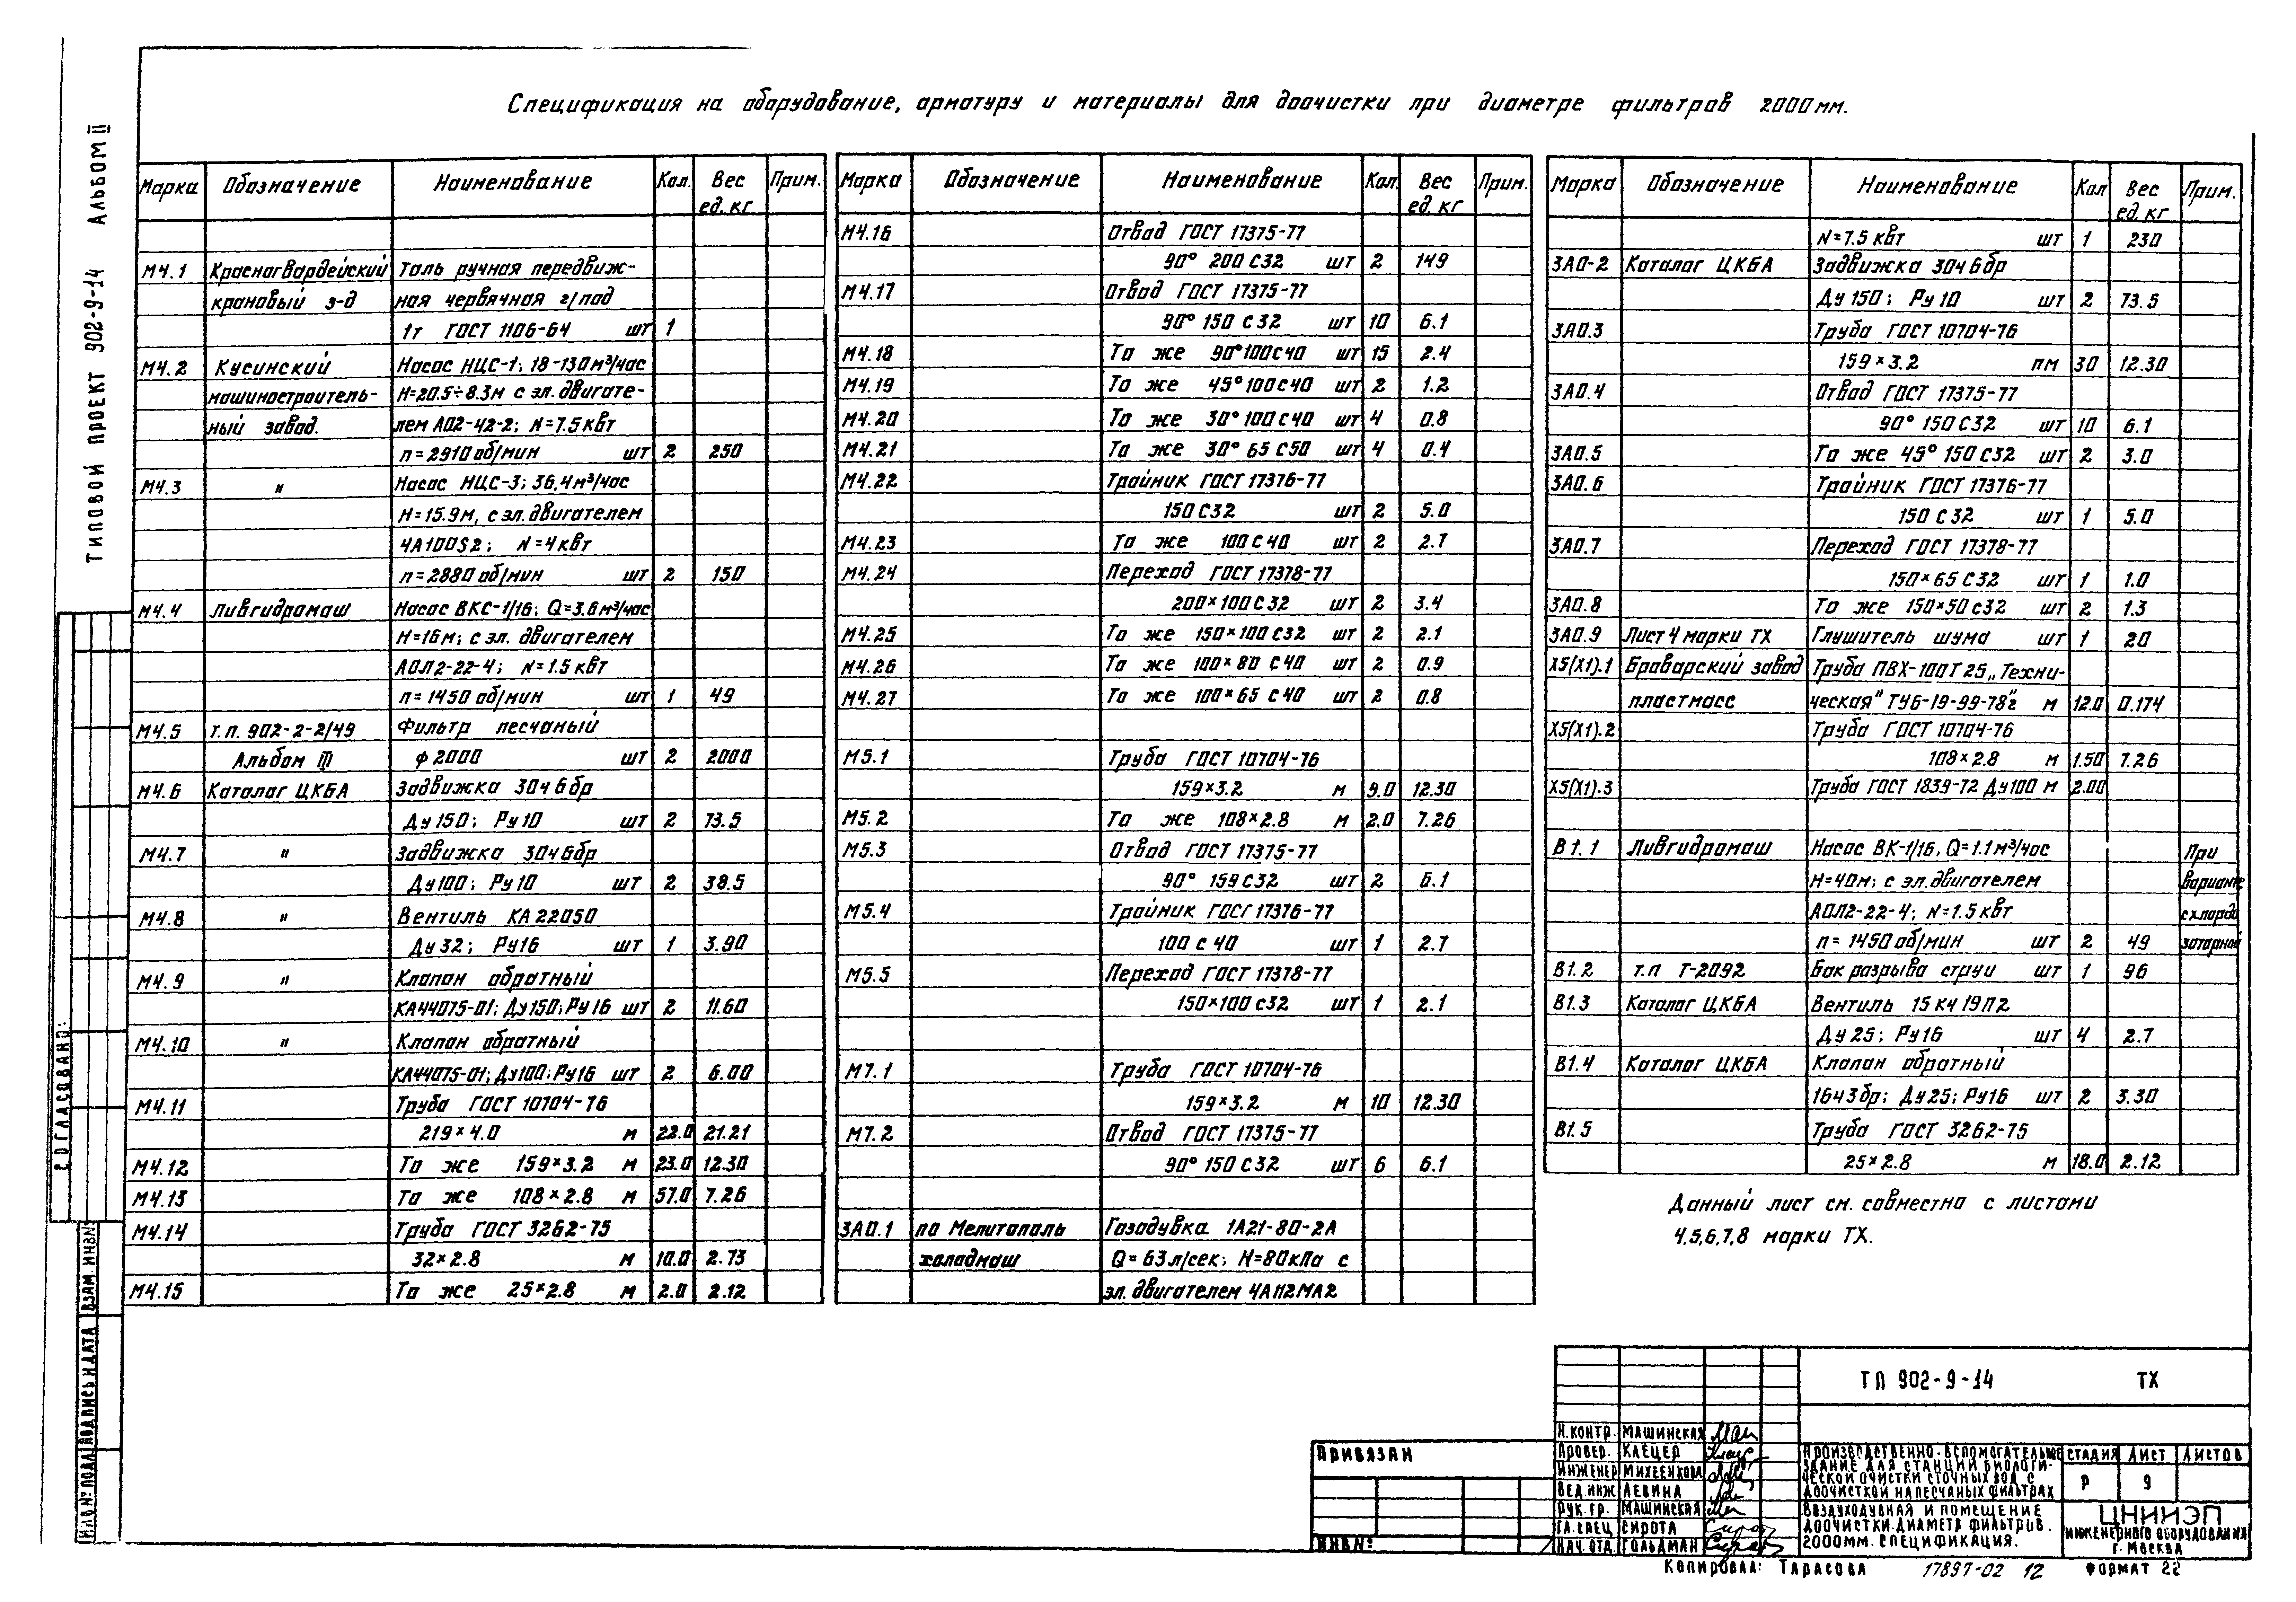 Спецификация на оборудование, арматуру и материалы для доочистки при диаметре фильтров 2000мм.
ТИПОВОЙ ПРОЕКТ 902-9-14 АЛЬБОМ II
Марка Обозначение Наименование Кол. Вес ед. кг Прим.
М4.1 Красногвардейский Таль ручная передвиж-
крановый з-д ная червячная г/под
1т ГОСТ 1106-64 шт 1
М4.2 Кусинский Насос НЦС-1; 18-130м³/час
машиностроитель- H=20.5÷8.3м с эл. двигате-
ный завод. лем АО2-42-2; N=7.5квт
n=2910 об/мин шт 2 250
М4.3 " Насос НЦС-3; 36,4м³/час
H=15.9м, с эл. двигателем
4А100S2; N=4квт
n=2880 об/мин шт 2 150
М4.4 Ливгидромаш Насос ВКС-1/16; Q=3.6м³/час
H=16м; с эл. двигателем
АОЛ2-22-4; N=1.5квт
n=1450 об/мин шт 1 49
М4.5 т.п. 902-2-2/49 Фильтр песчаный
Альбом III ф2000 шт 2 2000
М4.6 Каталог ЦКБА Задвижка 30ч6бр
Ду150; Ру10 шт 2 73.5
М4.7 " Задвижка 30ч6бр
Ду100; Ру10 шт 2 38.5
М4.8 " Вентиль КА22050
Ду32; Ру16 шт 1 3.90
М4.9 " Клапан обратный
КА44075-01; Ду150; Ру16 шт 2 11.60
М4.10 " Клапан обратный
КА44075-01; Ду100; Ру16 шт 2 6.00
М4.11 Труба ГОСТ 10704-76
219×4.0 м 22.0 21.21
М4.12 То же 159×3.2 м 23.0 12.30
М4.13 То же 108×2.8 м 57.0 7.26
М4.14 Труба ГОСТ 3262-75
32×2.8 м 10.0 2.73
М4.15 То же 25×2.8 м 2.0 2.12
Марка Обозначение Наименование Кол Вес ед. кг Прим.
М4.16 Отвод ГОСТ 17375-77
90° 200 С32 шт 2 149
М4.17 Отвод ГОСТ 17375-77
90° 150 С32 шт 10 6.1
М4.18 То же 90°100С40 шт 15 2.4
М4.19 То же 45°100С40 шт 2 1.2
М4.20 То же 30°100С40 шт 4 0.8
М4.21 То же 30° 65 С50 шт 4 0.4
М4.22 Тройник ГОСТ 17376-77
150 С32 шт 2 5.0
М4.23 То же 100 С40 шт 2 2.7
М4.24 Переход ГОСТ 17378-77
200×100 С32 шт 2 3.4
М4.25 То же 150×100 С32 шт 2 2.1
М4.26 То же 100×80 С40 шт 2 0.9
М4.27 То же 100×65 С40 шт 2 0.8
М5.1 Труба ГОСТ 10704-76
159×3.2 м 9.0 12.30
М5.2 То же 108×2.8 м 2.0 7.26
М5.3 Отвод ГОСТ 17375-77
90° 159 С32 шт 2 6.1
М5.4 Тройник ГОСТ 17376-77
100 с 40 шт 1 2.7
М5.5 Переход ГОСТ 17378-77
150×100 с32 шт 1 2.1
М7.1 Труба ГОСТ 10704-76
159×3.2 м 10 12.30
М7.2 Отвод ГОСТ 17375-77
90° 150 С32 шт 6 6.1
ЗАО.1 по Мелитополь Газодувка 1А21-80-2А
холодмаш Q=63л/сек; H=80кПа с
эл. двигателем 4АП2МА2
Марка Обозначение Наименование Кол Вес ед. кг Прим.
N=7.5 квт шт 1 230
ЗАО-2 Каталог ЦКБА Задвижка 30ч6бр
Ду150; Ру10 шт 2 73.5
ЗАО.3 Труба ГОСТ 10704-76
159×3.2 пм 30 12.30
ЗАО.4 Отвод ГОСТ 17375-77
90° 150 С32 шт 10 6.1
ЗАО.5 То же 45° 150 С32 шт 2 3.0
ЗАО.6 Тройник ГОСТ 17376-77
150 С32 шт 1 5.0
ЗАО.7 Переход ГОСТ 17378-77
150×65 С32 шт 1 1.0
ЗАО.8 То же 150×50 с32 шт 2 1.3
ЗАО.9 Лист 4 марки ТХ Глушитель шума шт 1 20
Х5(Х1).1 Броварский завод Труба ПВХ-100Т 25 „Техни-
пластмасс ческая" ТУ6-19-99-78г м 12.0 0.174
Х5(Х1).2 Труба ГОСТ 10704-76
108×2.8 м 1.50 7.26
Х5(Х1).3 Труба ГОСТ 1839-72 Ду100 м 2.00
В1.1 Ливгидромаш Насос ВК-1/16, Q=1.1м³/час При
H=40м; с эл. двигателем варианте
АОЛ2-22-4; N=1.5квт с хлорато
n=1450 об/мин шт 2 49
В1.2 т.п Т-2092 Бак разрыва струи шт 1 96
В1.3 Каталог ЦКБА Вентиль 15кч19П2
Ду25; Ру16 шт 4 2.7
В1.4 Каталог ЦКБА Клапан обратный
16ч3бр; Ду25; Ру16 шт 2 3.30
В1.5 Труба ГОСТ 3262-75
25×2.8 м 18.0 2.12
Данный лист см. совместно с листами
4,5,6,7,8 марки ТХ.
СОГЛАСОВАНО:
ИНВ№ПОДЛ ПОДПИСЬ И ДАТА ВЗАМ.ИНВ№
ПРИВЯЗАН
ИНВ№
ТП 902-9-14 ТХ
Н.КОНТР. МАШИНСКАЯ
ПРОВЕР. КЛЕЦЕР
ИНЖЕНЕР МИХЕЕНКОВА
ВЕД.ИНЖ ЛЕВИНА
РУК.ГР. МАШИНСКАЯ
ГЛ.СПЕЦ СИРОТА
НАЧ.ОТД. ГОЛЬДМАН
ПРОИЗВОДСТВЕННО-ВСПОМОГАТЕЛЬНОЕ
ЗДАНИЕ ДЛЯ СТАНЦИЙ БИОЛОГИ-
ЧЕСКОЙ ОЧИСТКИ СТОЧНЫХ ВОД С
ДООЧИСТКОЙ НА ПЕСЧАНЫХ ФИЛЬТРАХ
СТАДИЯ ЛИСТ ЛИСТОВ
Р 9
ВОЗДУХОДУВНАЯ И ПОМЕЩЕНИЕ
ДООЧИСТКИ. ДИАМЕТР ФИЛЬТРОВ.
2000ММ. СПЕЦИФИКАЦИЯ.
ЦНИИЭП
ИНЖЕНЕРНОГО ОБОРУДОВАНИЯ
Г. МОСКВА
Копировал: Тарасова 17897-02 12 ФОРМАТ 22